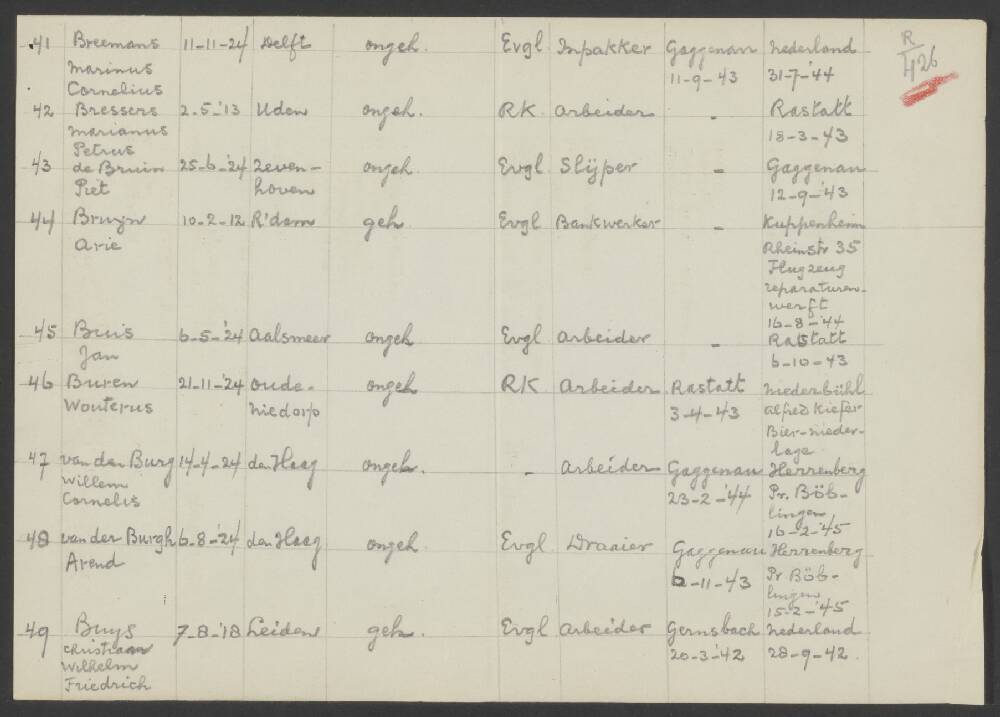 R
426
41 Breemans 11-11-24 Delft ongeh. Evgl Inpakker Gaggenau Nederland
Marinus 11-9-43 31-7-'44
Cornelius
42 Bressers 2.5-'13 Uden ongeh. RK Arbeider - Rastatt
Marianus 18-3-43
Petrus
43 de Bruin 25-6-'24 Zeven- ongeh. Evgl Slijper - Gaggenau
Piet hoven 12-9-'43
44 Bruyn 10-2-12 R'dam geh Evgl Bankwerker - Kuppenheim
Arie Rheinstr 35
Flugzeug
reparaturen-
werft
16-8-'44
45 Buis 6-5-'24 Aalsmeer ongeh Evgl Arbeider - Rastatt
Jan 6-10-43
46 Buren 21-11-'24 Oude- ongeh RK Arbeider Rastatt Niederbühl
Wouterus Niedorp 3-4-43 Alfred Kiefer
Bier-nieder-
lage
47 van der Burg 14-4-24 den Haag ongeh. - Arbeider Gaggenau Herrenberg
Willem 23-2-'44 Pr. Böb-
Cornelis lingen
16-2-'45
48 van der Burgh 6-8-'24 den Haag ongeh Evgl Draaier Gaggenau Herrenberg
Arend 6-11-43 Pr Böb-
lingen
15-2-'45
49 Buys 7-8-'18 Leiden geh. Evgl Arbeider Gernsbach Nederland
Christiaan 20-3-'42 28-9-42.
Wilhelm
Friedrich